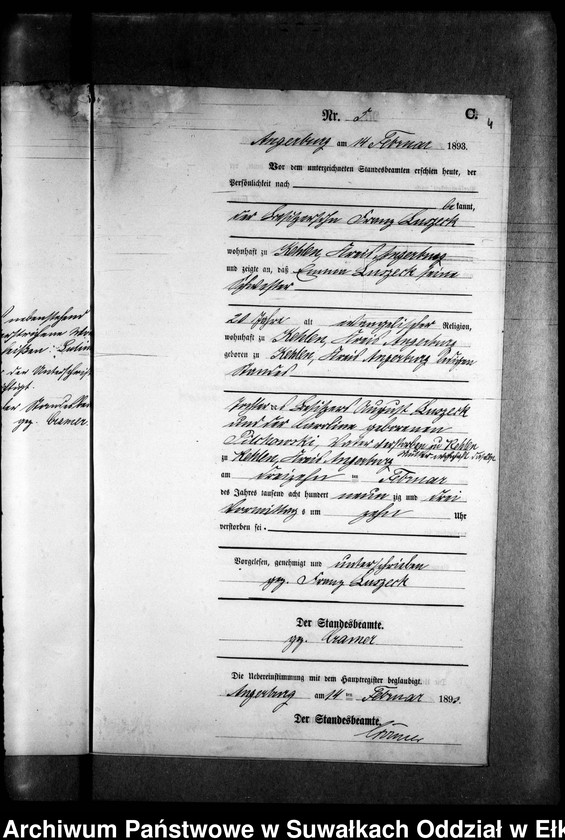 Nr. 5.
C.
4
Angerburg am 14 Februar 1893.
Vor dem unterzeichneten Standesbeamten erschien heute, der
Persönlichkeit nach
be kannt,
der Besitzersohn Franz Luszeck
wohnhaft zu Kehlen, Kreis Angerburg
und zeigte an, daß Emma Luszeck seine
Schwester
20 Jahre alt evangelischer Religion,
wohnhaft zu Kehlen, Kreis Angerburg
geboren zu Kehlen, Kreis Angerburg ledigen
Standes
Tochter des Besitzers August Luszeck
und der Karoline geborenen
Pilchowski, Vater verstorben in Kehlen
Mutter wohnhaft
zu Kehlen, Kreis Angerburg
am dreizehn ten Februar
des Jahres tausend acht hundert neun zig und drei
Vormittags um zehn Uhr
verstorben sei.
Vorgelesen, genehmigt und unterschrieben
gez. Franz Luszeck
Der Standesbeamte.
gez. Cramer
Die Uebereinstimmung mit dem Hauptregister beglaubigt.
Angerburg am 14 ten Februar 1893.
Der Standesbeamte.
Cramer
nebenstehend
der Unterschrift
Der Standesbeam
gez. Cramer.
Archiwum Państwowe w Suwałkach Oddział w Ełk